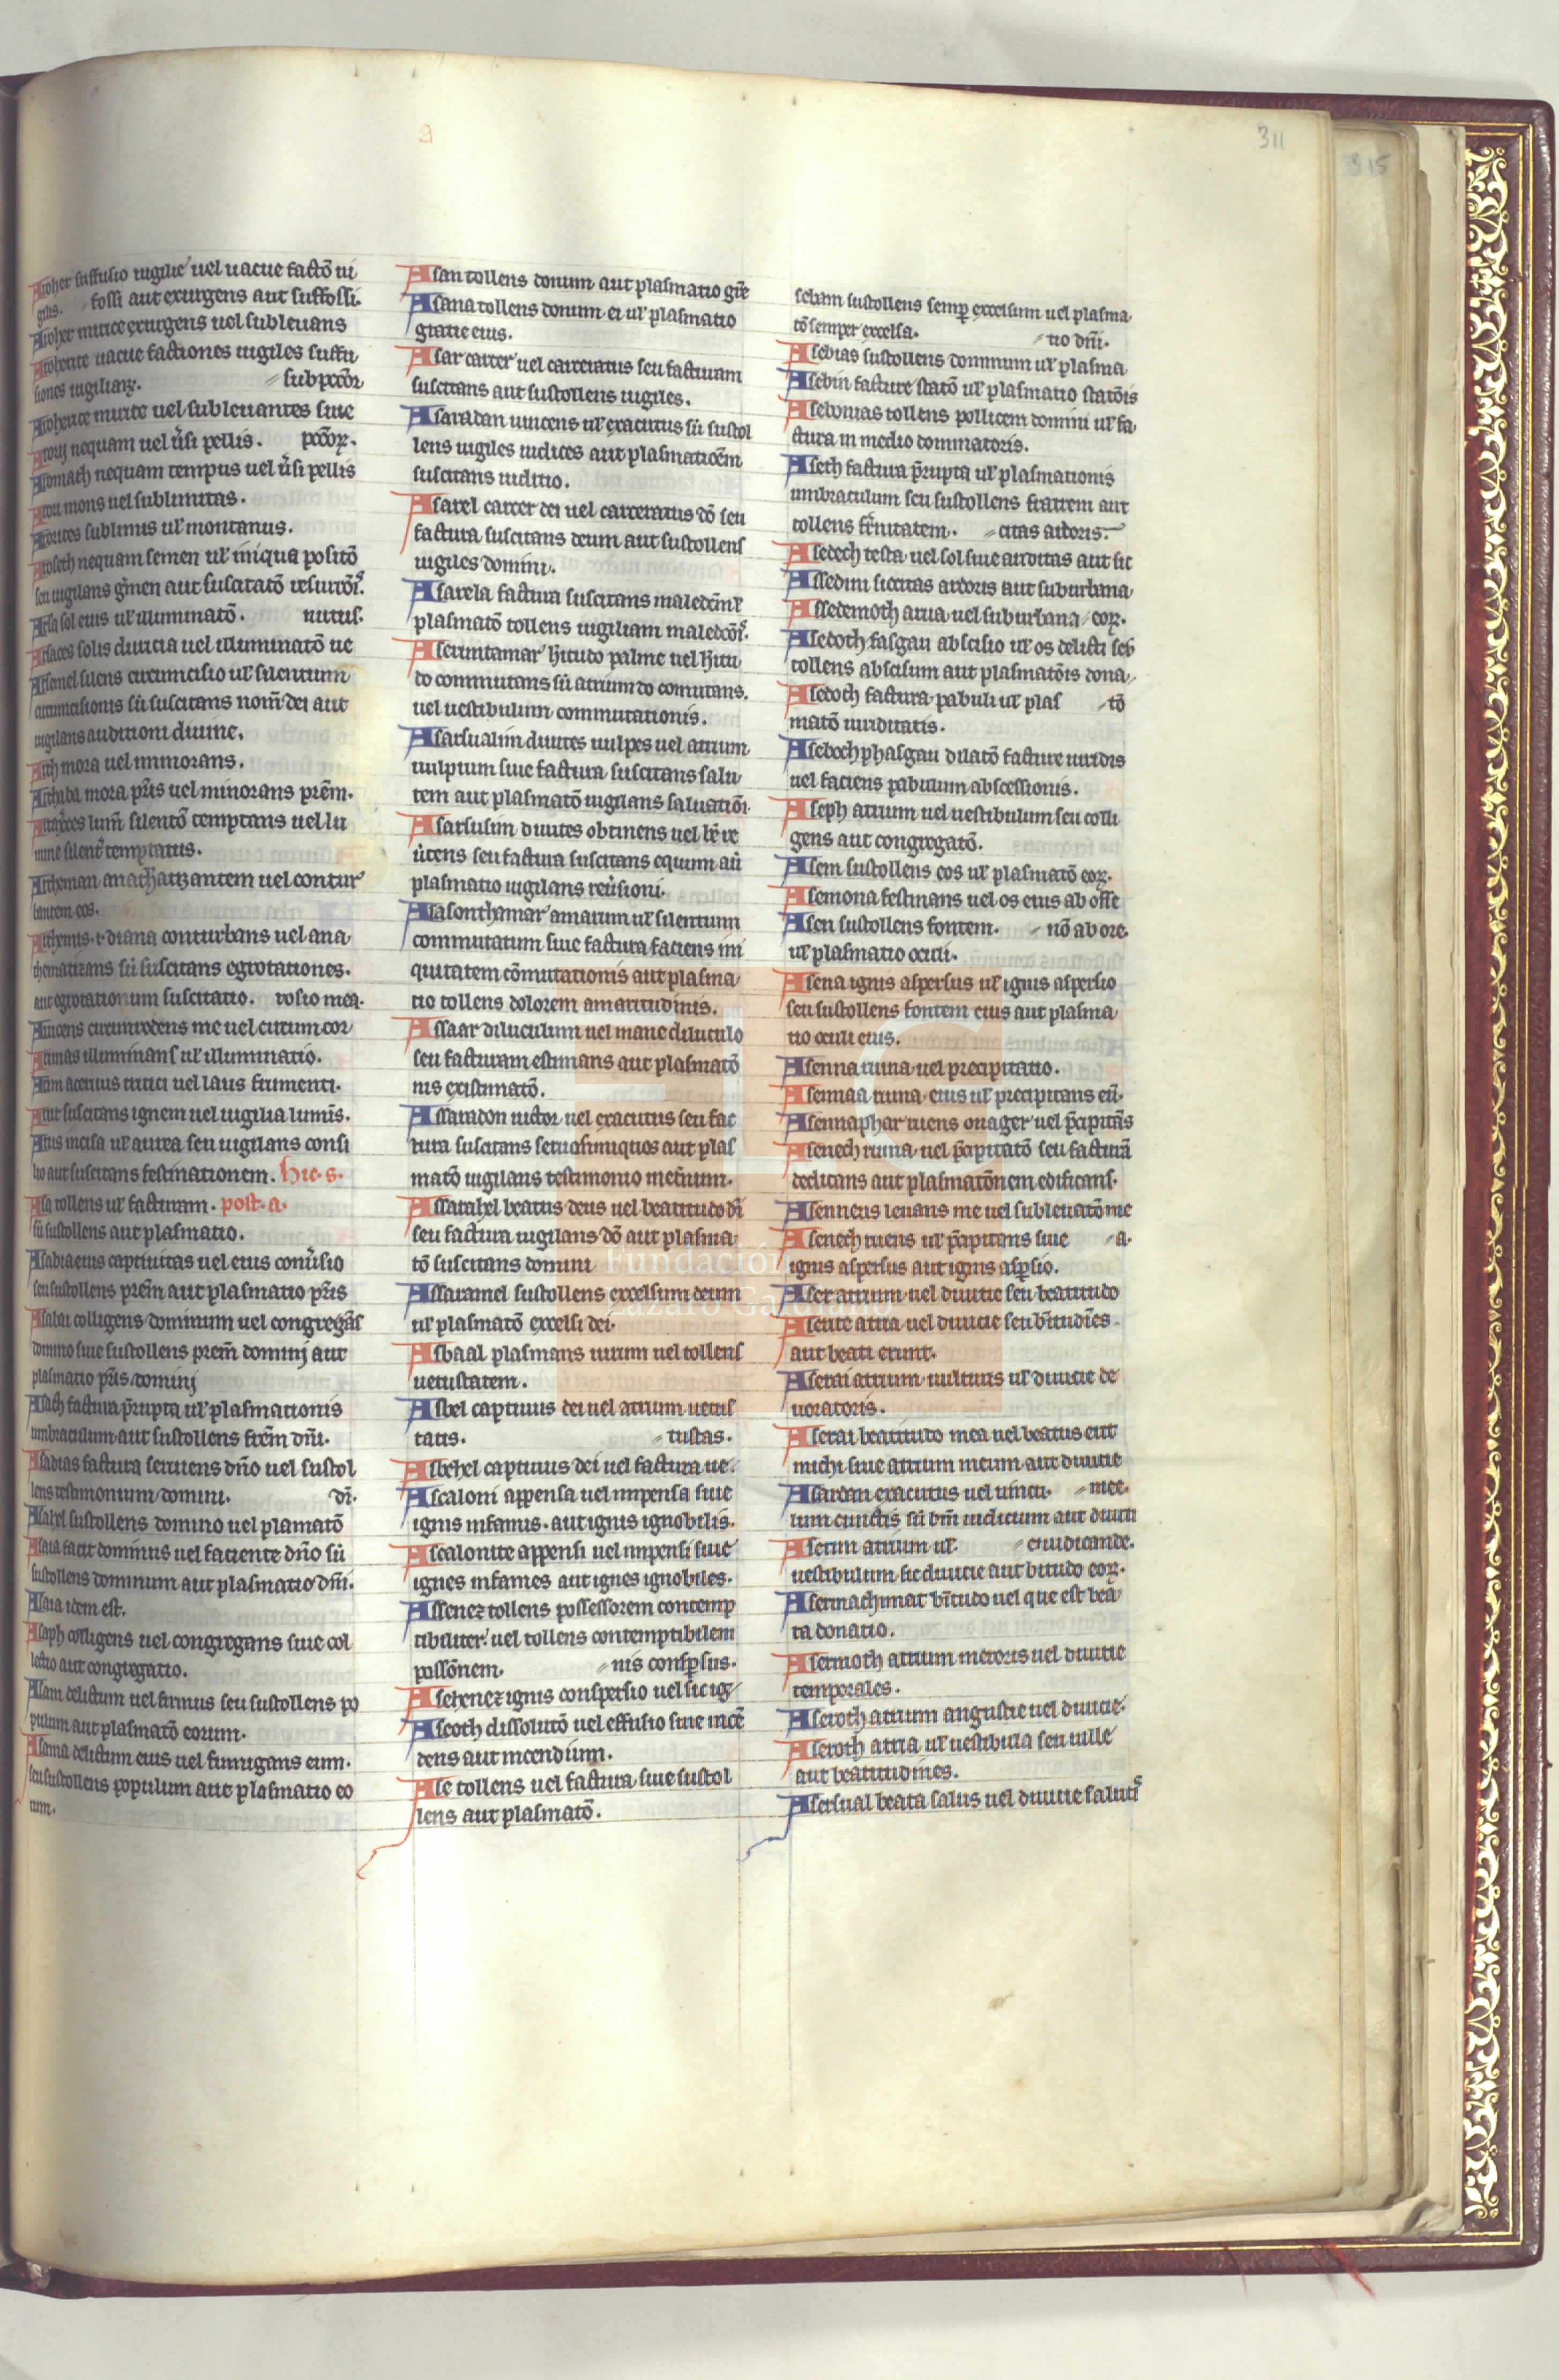 a
311
315
Aroher suffusio uigilie uel uacue factō ui
gilis. fossi aut exurgens aut suffossi.
Aroher murice exurgens uel subleuans
Arohente uacue factiones uigiles suffu
siones uigiliarꝝ. sub peccōr
Arohente murice uel subleuantes siue
nequam uel uṡi pellis. peccōꝝ.
Aromath nequam tempus uel uṡi pellis
mons uel sublimitas.
sublimus ul' montanus.
nequam semen ul' iniqua positō
seu uigilans gmen aut suscitatō resurrōis.
Arsa sol eius ul' illuminatō. nutus.
Arsaces solis diuicia uel illuminatō ue
Arsemel silens circumcisio ul' silentium
circumcisionis siu suscitans nom̄ dei aut
uigilans auditioni diuine.
Arth mora uel inmorans.
Arthaba mora pr̄is uel minorans prēm.
lum̄ silentō temptans uel lu
mine silent' temptatus.
Artheman anathatizantem uel contur
bantem eos.
Arthemis .i. diana conturbans uel ana
thematizans siu suscitans egrotationes.
aut egrotationum suscitatio. rosio mea.
circumrodens me uel circum cor
illuminans ul' illuminatio.
aceruus tritici uel laus frumenti.
suscitans ignem uel uigilia lumīs.
incisa ul' aurea seu uigilans consi
lio aut suscitans festinationem. hic .s.
Asa tollens ul' facturam. post .a.
siu sustollens aut plasmatio.
Asabia eius captiuitas uel eius conuṡio
seu sustollens prēm aut plasmatio pr̄is
Asabai colligens dominum uel congregās
domino siue sustollens prēm dominj aut
plasmatio pr̄is dominj
Asach factura p̄rupta ul' plasmationis
umbraculum aut sustollens frēm dn̄i.
Asadias factura seruiens dn̄o uel sustol
lens testimonium domini. di.
Asahel sustollens domino uel plamatō
Asaia facit dominus uel faciente dn̄o siu
sustollens dominum aut plasmatio dn̄i.
Asaia idem est.
Asaph colligens uel congregans siue col
lectio aut congregatio.
Asam delictum uel firmus seu sustollens po
pulum aut plasmatō eorum.
Asama delictum eius uel fumigans eum.
seu sustollens populum aut plasmatio eo
rum.
Asan tollens donum aut plasmatio grē
Asana tollens donum ei ul' plasmatio
gratie eius.
Asar carcer uel carceratus seu facturam
suscitans aut sustollens uigiles.
Asaradan uincens ul' exacutus siu sustol
lens uigiles iudices aut plasmaticēm
suscitans iuditio.
Asarel carcer dei uel carceratus dō seu
factura suscitans deum aut sustollens
uigiles domini.
Asarela factura suscitans maledcm̄
plasmatō tollens uigiliam maledcōis.
Aseruntamar' hitudo palme uel hitu
do commutans siu atrium do comutans.
uel uestibulum commutationis.
Asarsualim diuites uulpes uel atrium
uulpium siue factura suscitans salu
tem aut plasmatō uigilans saluatiōi.
Asarsusim diuites obtinens uel brē re
utens seu factura suscitans equum aū
plasmatio uigilans reūsioni.
Asasonthamar amarum ul' silentium
commutatum siue factura faciens ini
quitatem cōmutationis aut plasma
tio tollens dolorem amaritudinis.
Assaar diluculum uel mane diluculo
seu facturam estimans aut plasmatō
nis existimatō.
Assaradon uictor uel exacutus seu fac
tura suscitans seruos iniquos aut plas
matō uigilans testimonio
Assarahel beatus deus uel beatitudo di
seu factura uigilans dō aut plasma
tō suscitans domini
Assaramel sustollens excelsum deum
ul' plasmatō excelsi dei.
Asbaal plasmans uirum uel tollens
uetustatem.
Asbel captiuus dei uel atrium uetus
tatis. tustas.
Asbehel captiuus dei uel factura ue
Ascaloni appensa uel impensa siue
ignis infamis. aut ignis ignobilis.
Ascalonite appensi uel impensi siue
ignes infames aut ignes ignobiles.
Assenez tollens possessorem contemp
tibiliter uel tollens contemptibilem
possōnem. nis consp̄sus.
Asehenez ignis conspersio uel sic ig
Aseoth dissolutō uel effusio siue incē
dens aut incendium.
Ase tollens uel factura siue sustol
lens aut plasmatō.
sebam sustollens semp̄ excelsum uel plasma
tō semper excelsa. tio dn̄i.
Asebias sustollens dominum ul' plasma
Asebin facture statō ul' plasmatio statōis
Asebonias tollens pollicem domini ul' fa
ctura in medio dominatoris.
Aseth factura p̄rupta ul' plasmationis
umbraculum seu sustollens fratrem aut
tollens fr̄nitatem. citas ardoris.
Asedech testa uel sol siue arditas aut sic
Assedim siccitas ardoris aut suburbana
Assedemoth arua uel suburbana eoꝝ.
Asedoth fasgau abscisio ul' os delicti seu
tollens abscisum aut plasmatōis dona
Asedoch factura pabuli ul' plas tō
matō uiriditatis.
Asedoch phasgau dilatō facture uiridis
uel faciens pabulum abscessionis.
Aseph atrium uel uestibulum seu colli
gens aut congregatō.
Asem sustollens eos ul' plasmatō eoꝝ.
Asemona festinans uel os eius ab osse
Asen sustollens fontem. nō ab ore.
ul' plasmatio oculi.
Asena ignis aspersus ul' ignis aspersio
seu sustollens fontem eius aut plasma
tio oculi eius.
Asenna ruina uel precipitatio.
Asennaa ruina eius ul' precipitans eū.
Asennaphar ruens onager uel p̄cipitās
Asenech ruina uel p̄cipitatō seu facturā
dedicans aut plasmatōnem edificans.
Asenneus leuans me uel subleuatō me
Asenech ruens ul' p̄cipitans siue a.
ignis aspersus aut ignis aspersio.
Aser atrium uel diuitie seu beatitudo
Aserite atria uel diuicie seu bītudies
aut beati erunt.
Aserai atrium uulturis ul' diuitie de
uoratoris.
Aserai beatitudo mea uel beatus erit
michi siue atrium meum aut diuitie
Asardan exacutus uel uincu mee.
lum cunctis siu bm̄ iudicium aut diuiti
Aserim atrium ul' eiudicande.
uestibulum sic diuitie aut bitudo eoꝝ.
Asermachimat bītudo uel que est bea
ta donatio.
Asermoth atrium meroris uel diuitie
temporales.
Aseroth atrium angustie uel diuicie.
Aseroth atria ul' uestibula seu uille
aut beatitudines.
Asersual beata salus uel diuitie saluti
Fundación
Lázaro Galdiano